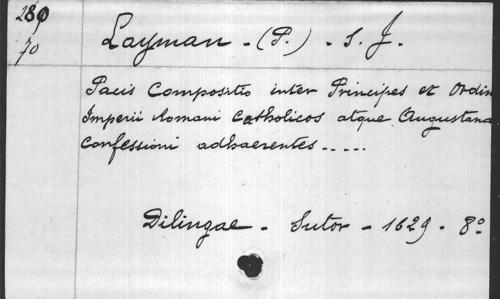 289 Layman - (P.) - S. J.
70
Pacis Compositio inter Principes et Ordin
Imperii Romani Catholicos atque Augustana
Confessioni adhaerentes .....
Dilingae - Sutor - 1629 - 8º